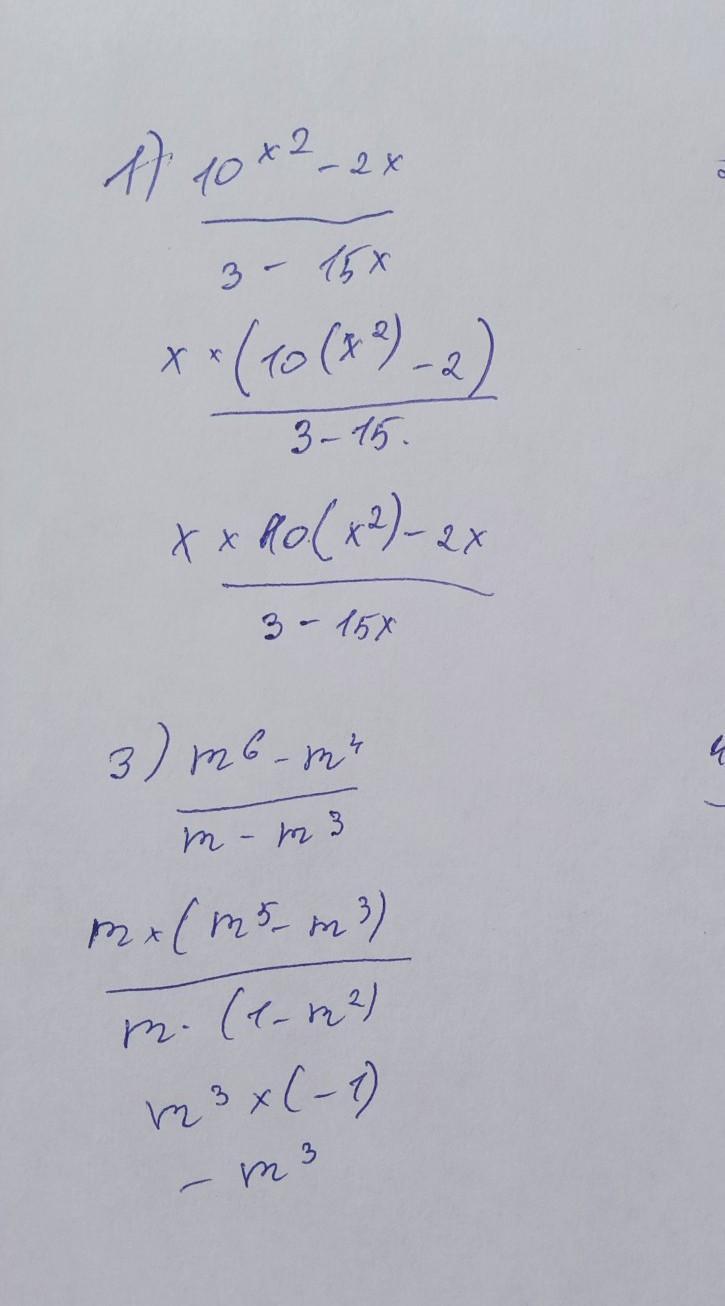 1) 10^x2 - 2x
3 - 15x
x × (10(x²) - 2)
3 - 15.
x × 10(x²) - 2x
3 - 15x
3) m⁶ - m⁴
m - m³
m × (m⁵ - m³)
m · (1 - m²)
m³ × (-1)
- m³